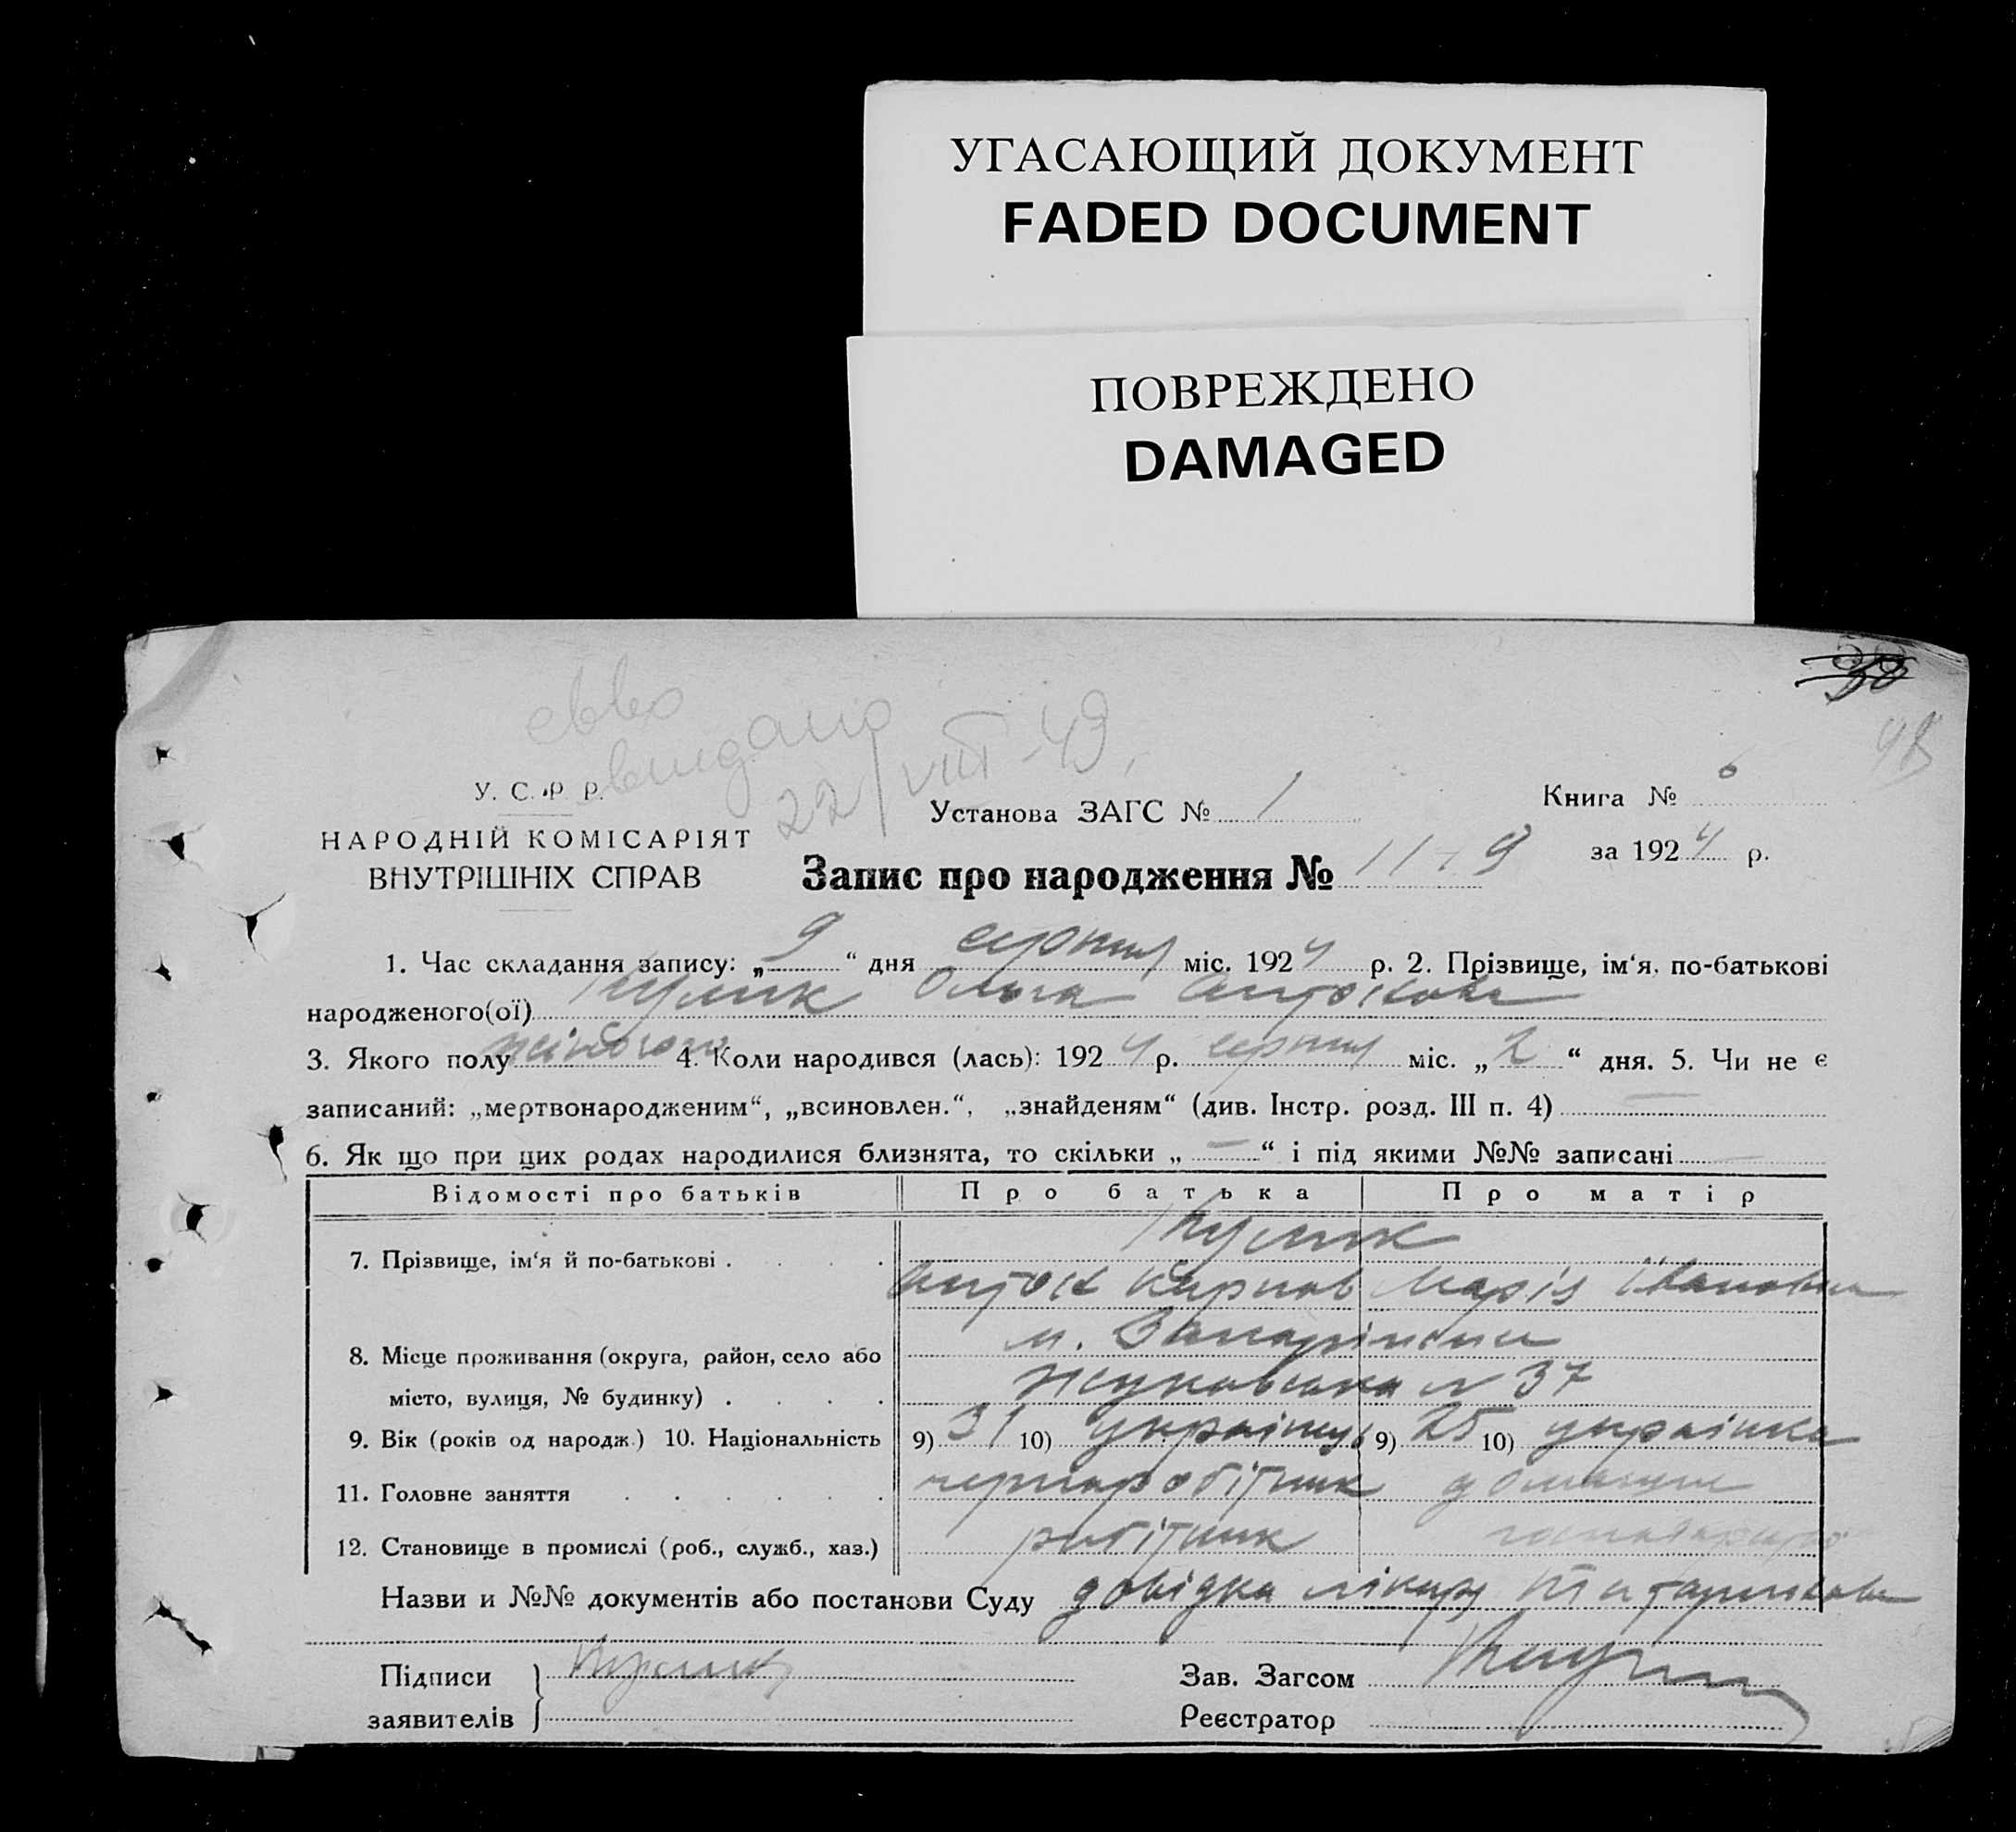 УГАСАЮЩИЙ ДОКУМЕНТ
FADED DOCUMENT
ПОВРЕЖДЕНО
DAMAGED
50
48
видано
22/VIII-49
У. С. Р. Р.
НАРОДНІЙ КОМІСАРІЯТ
ВНУТРІШНІХ СПРАВ
Установа ЗАГС № 1
Книга № 6
за 1924 р.
Запис про народження № 11 9
1. Час складання запису: „9“ дня серпня міс. 1924 р. 2. Прізвище, ім‘я, по-батькові
народженого(ої) Кулик Ольга Антонова
3. Якого полу жіночого 4. Коли народився (лась): 1924 р. серпня міс. „2“ дня. 5. Чи не є
записаний: „мертвонародженим“, „всиновлен.“, „знайденям“ (див. Інстр. розд. III п. 4) —
6. Як що при цих родах народилися близнята, то скільки „—“ і під якими №№ записані —
Відомості про батьків Про батька Про матір
7. Прізвище, ім‘я й по-батькові . . . . Кулик
Антон Карпов Марія Івановна
8. Місце проживання (округа, район, село або м.
місто, вулиця, № будинку) . . . . Жуковська № 37
9. Вік (років од народж.) 10. Національність 9) 31 10) українец 9) 25 10) українка
11. Головне заняття . . . . . . чернаробітник домашнє
12. Становище в промислі (роб., служб., хаз.) робітник господарство
Назви и №№ документів або постанови Суду довідка лікаря
Підписи Кулик
заявителів
Зав. Загсом
Реєстратор